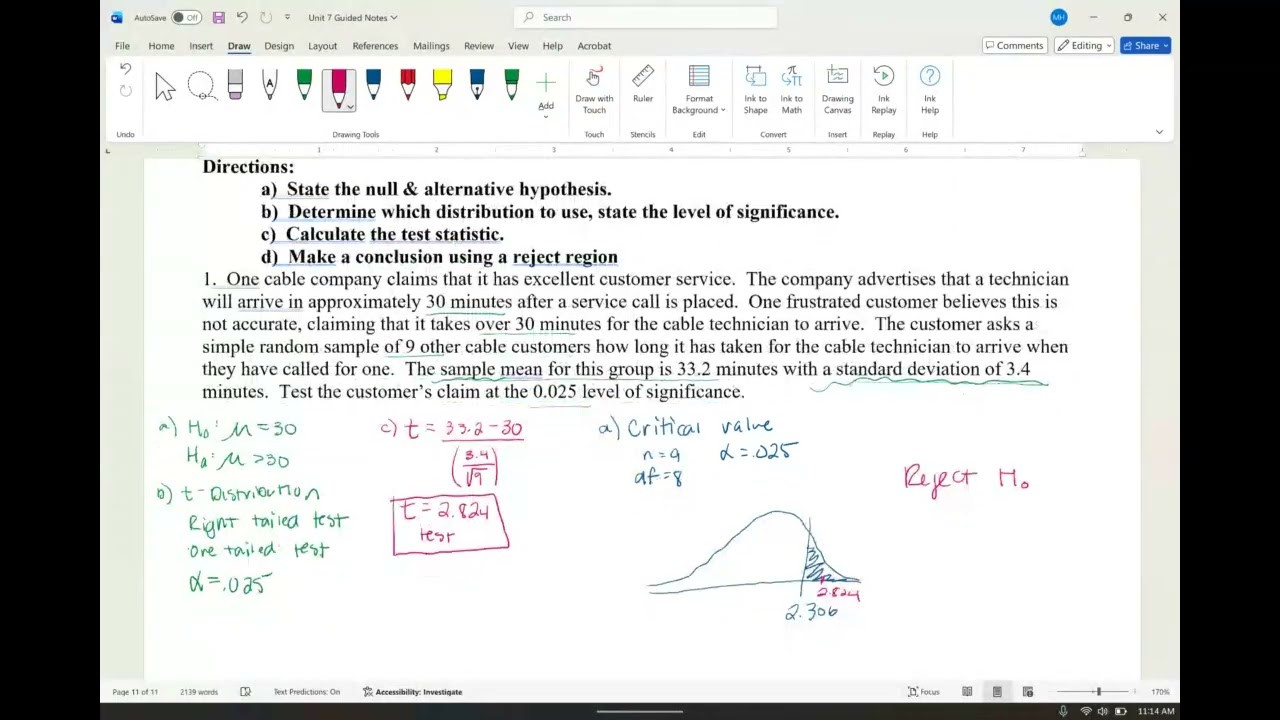 AutoSave Off Unit 7 Guided Notes Search MH
File Home Insert Draw Design Layout References Mailings Review View Help Acrobat Comments Editing Share
Undo
Add
Draw with Touch
Ruler
Format Background
Ink to Shape
Ink to Math
Drawing Canvas
Ink Replay
Ink Help
Undo Drawing Tools Touch Stencils Edit Convert Insert Replay Help
1 2 3 4 5 6 7
Directions:
a) State the null & alternative hypothesis.
b) Determine which distribution to use, state the level of significance.
c) Calculate the test statistic.
d) Make a conclusion using a reject region
1. One cable company claims that it has excellent customer service. The company advertises that a technician
will arrive in approximately 30 minutes after a service call is placed. One frustrated customer believes this is
not accurate, claiming that it takes over 30 minutes for the cable technician to arrive. The customer asks a
simple random sample of 9 other cable customers how long it has taken for the cable technician to arrive when
they have called for one. The sample mean for this group is 33.2 minutes with a standard deviation of 3.4
minutes. Test the customer's claim at the 0.025 level of significance.
a) H₀: μ = 30
Ha: μ > 30
b) t-Distribution
Right tailed test
one tailed test
α = .025
c) t = 33.2 - 30
(3.4
√9)
t = 2.824
test
d) Critical value
n = 9 α = .025
df = 8
2.824
2.306
Reject H₀
Page 11 of 11 2139 words Text Predictions: On Accessibility: Investigate Focus 170%
11:14 AM